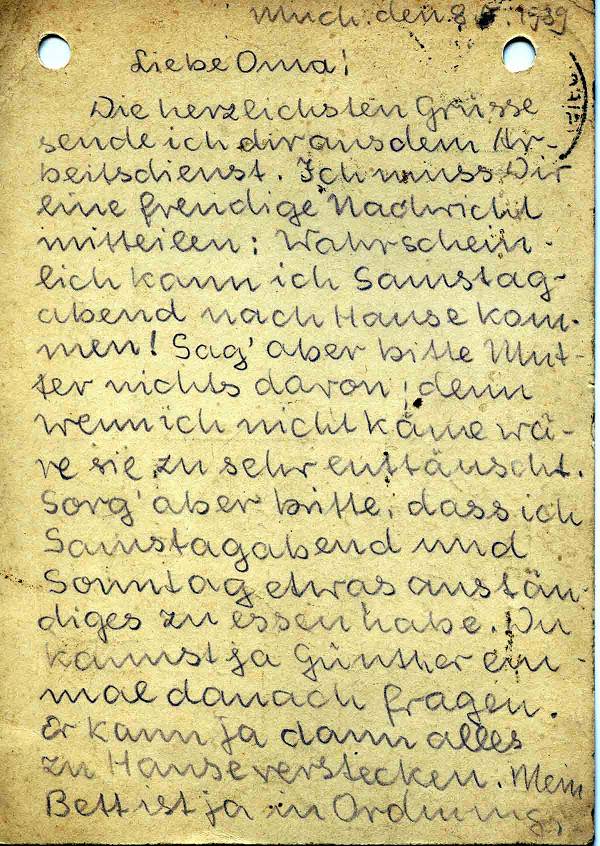 Much. den 8. 5. 1939
Liebe Oma!
Die herzlichsten Grüsse
sende ich dir aus dem Ar-
beitsdienst. Ich muss Dir
eine freudige Nachricht
mitteilen: Wahrschein-
lich kann ich Samstag-
abend nach Hause kom-
men! Sag' aber bitte Mut-
ter nichts davon, denn
wenn ich nicht käme wä-
re sie zu sehr enttäuscht.
Sorg' aber bitte, dass ich
Samstagabend und
Sonntag etwas anstän-
diges zu essen habe. Du
kannst ja Günther ein-
mal danach fragen.
Er kann ja dann alles
zu Hause verstecken. Mein
Bett ist ja in Ordnung,